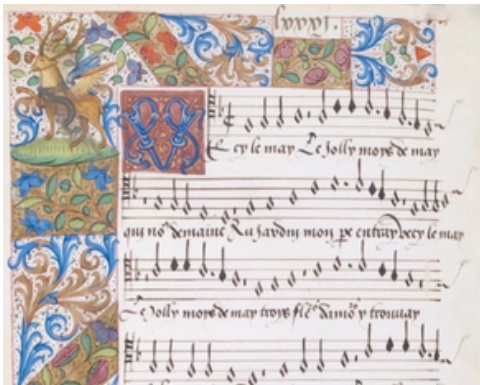 Vecy le may Le jolly moys de may
qui no⁹ demaine Au jardin mon pe entray Vecy le may
Le jolly moys de may troys fle^s damo^s y trouvay